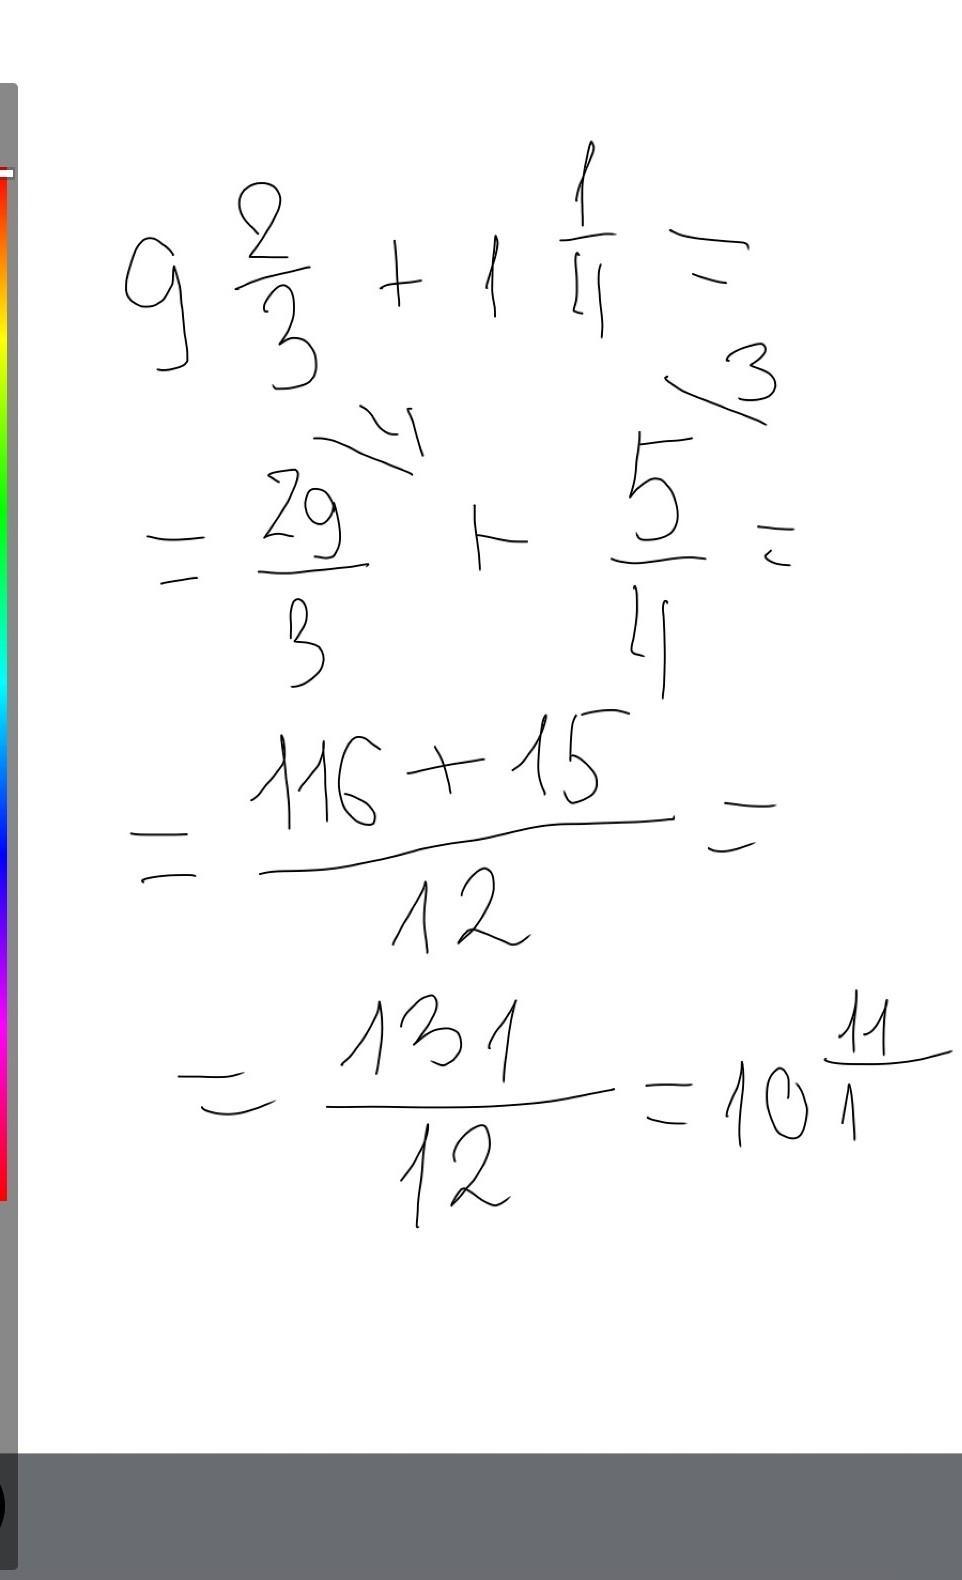 9 2/3 + 1 1/4 =
= 29/3 \4 + 5/4 \3 =
= 116 + 15/12 =
= 131/12 = 10 11/1